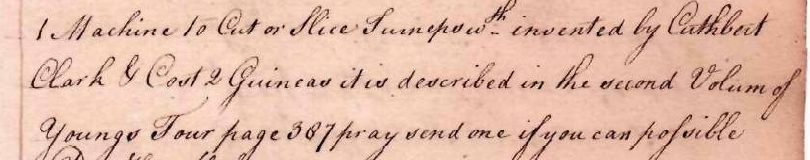 1 Machine to Cut or Slice Turnepsw.th invented by Cuthbert
Clark & Cost 2 Guineas it is described in the second Volum of
Youngs Tour page 387 pray send one if you can possible